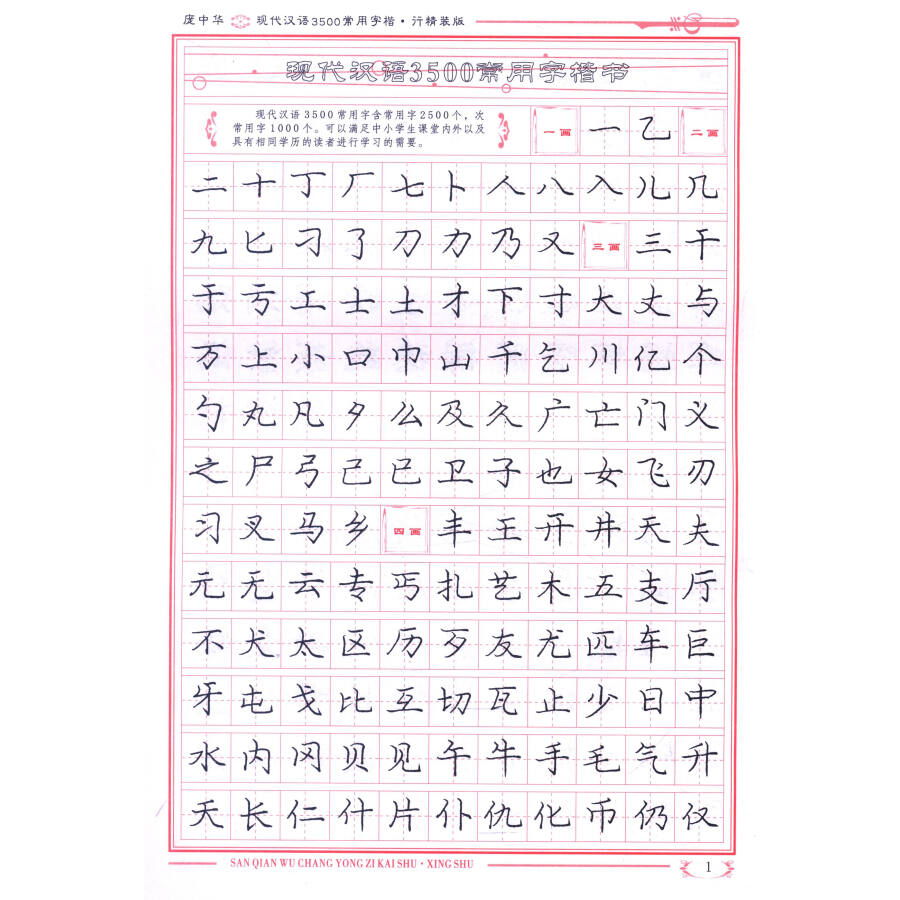 庞中华 现代汉语3500常用字楷·行精装版
现代汉语3500常用字楷书
现代汉语3500常用字含常用字2500个,次
常用字1000个。可以满足中小学生课堂内外以及
具有相同学历的读者进行学习的需要。
一画 一 乙 二画
二 十 丁 厂 七 卜 人 八 入 儿 几
九 匕 刁 了 刀 力 乃 又 三画 三 干
于 亏 工 士 土 才 下 寸 大 丈 与
万 上 小 口 巾 山 千 乞 川 亿 个
勺 丸 凡 夕 么 及 久 广 亡 门 义
之 尸 弓 己 已 卫 子 也 女 飞 刃
习 叉 马 乡 四画 丰 王 开 井 天 夫
元 无 云 专 丐 扎 艺 木 五 支 厅
不 犬 太 区 历 歹 友 尤 匹 车 巨
牙 屯 戈 比 互 切 瓦 止 少 日 中
水 内 冈 贝 见 午 牛 手 毛 气 升
夭 长 仁 什 片 仆 仇 化 币 仍 仅
SAN QIAN WU CHANG YONG ZI KAI SHU·XING SHU
1